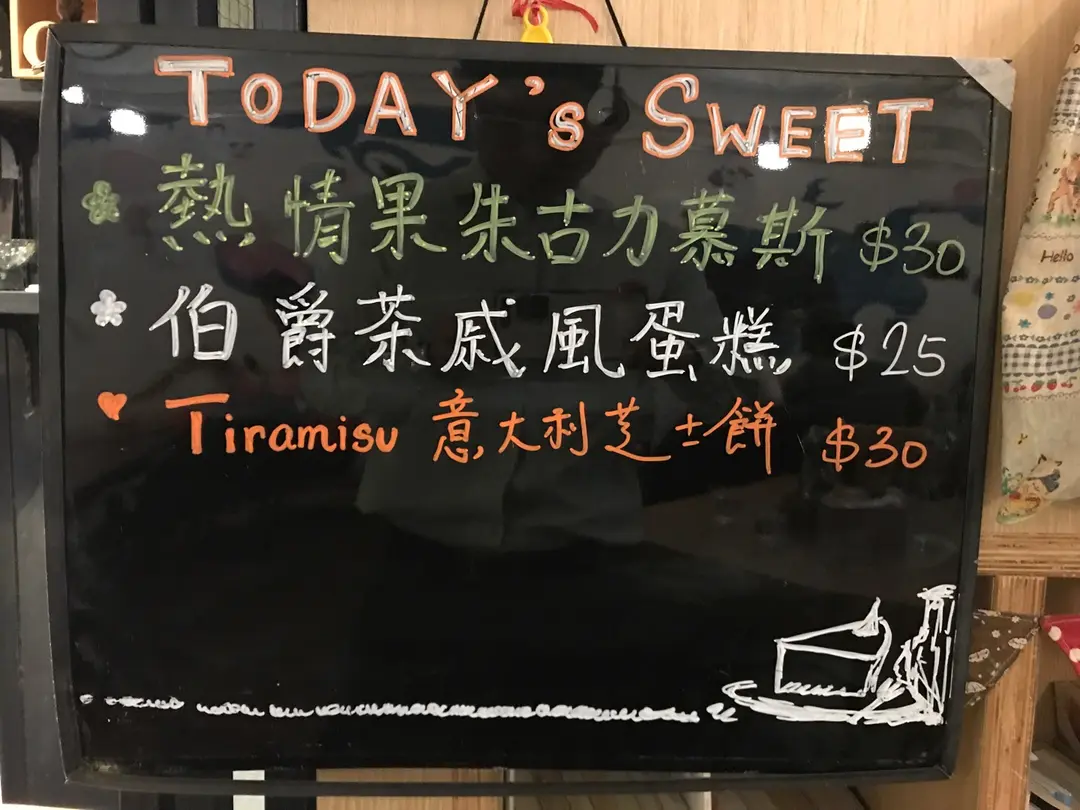 TODAY's SWEET
熱情果朱古力慕斯 $30
伯爵茶戚風蛋糕 $25
Tiramisu 意大利芝士餅 $30
Hello